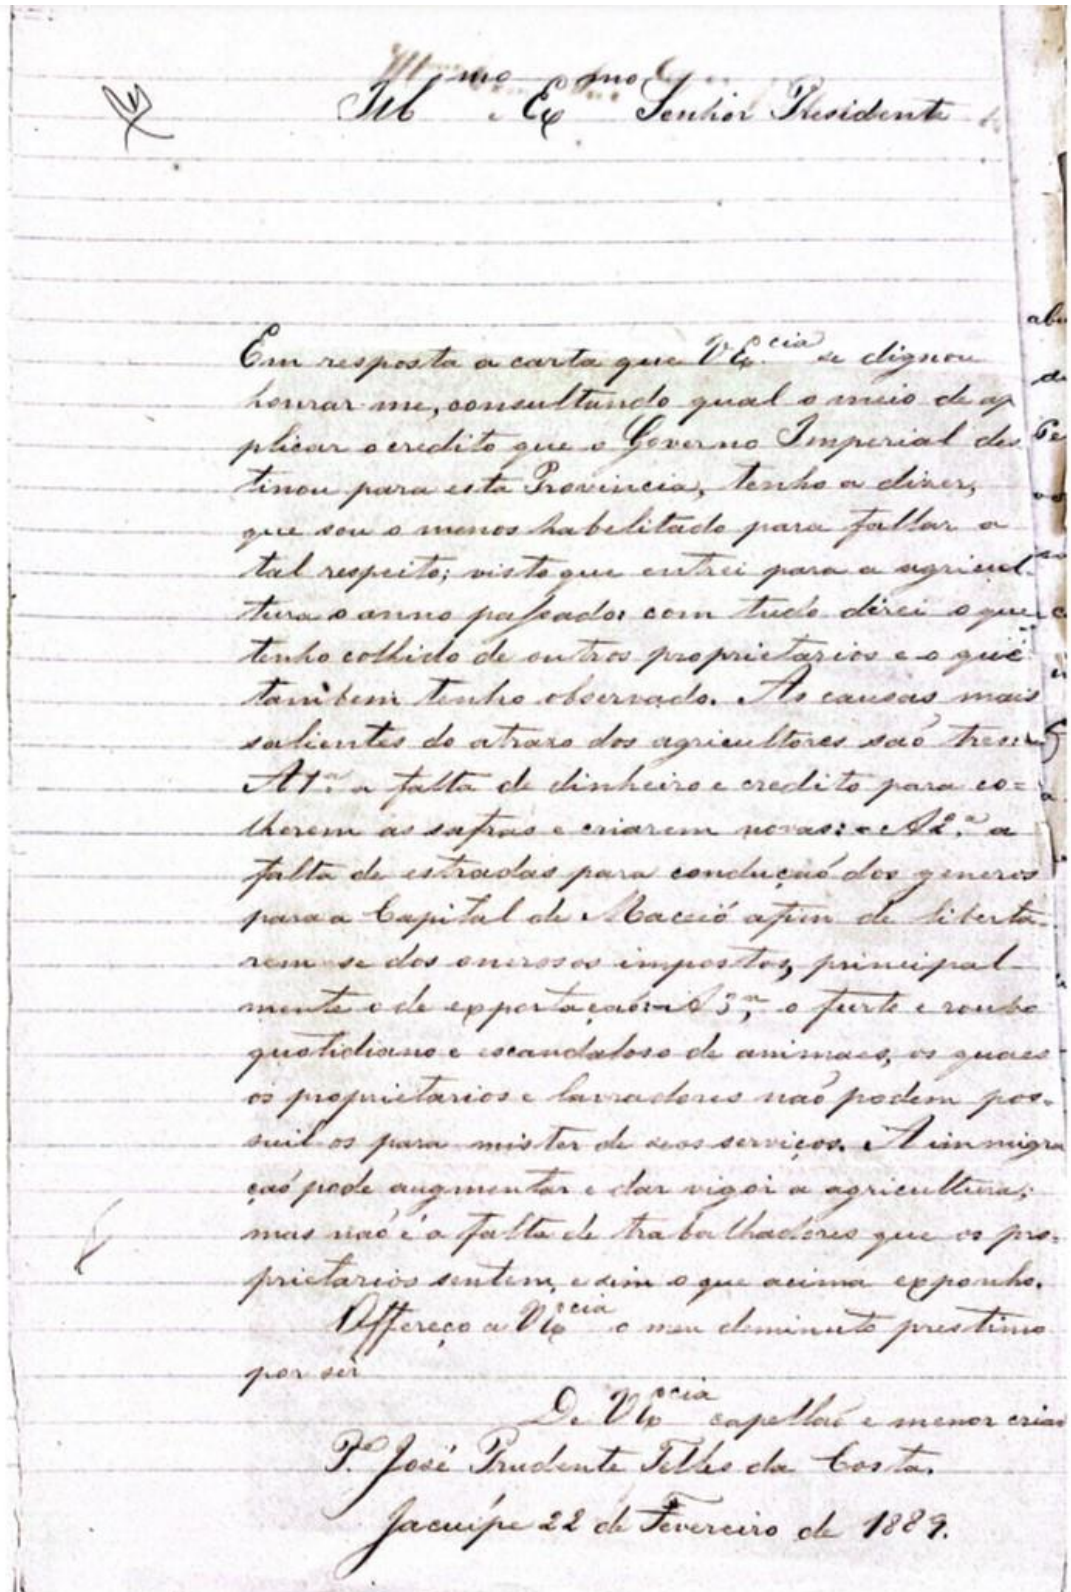 Ill.mo e Ex.mo Senhor Presidente
Em resposta a carta que V Ex.cia se dignou
honrar me, consultando qual o meio de ap
plicar o credito que o Governo Imperial des
tinou para esta Provincia, tenho a dizer,
que sou o menos habelitado para fallar a
tal respeito; visto que entrei para a agricul-
tura o anno passado: com tudo direi o que
tenho colhido de outros proprietarios e o que
tambem tenho observado. As causas mais
salientes do atrazo dos agricultores saõ tres:
A 1.a a falta de dinheiro e credito para co=
lherem as safras e criarem novas: A 2.a a
falta de estradas para conduçaõ dos generos
para a Capital de Maceió afim de liberta-
rem se dos onerosos impostos, principal-
mente o de exportaçaõ: A 3.a, o furto e roubo
quotidiano e escandaloso de animaes, os quaes
os proprietarios e lavradores naõ podem pos=
suil os para mister de seos serviços. A immigra
çaõ pode augmentar e dar vigor a agricultura;
mas naõ é a falta de trabalhadores que os pro=
prietarios sentem, e sim o que acima exponho.
Offereço a V Ex.cia o meu deminuto prestimo
por ser
De V Ex.cia capellaõ e menor criad
P.e José Prudente Telles da Costa.
Jacuípe 22 de Fevereiro de 1889.